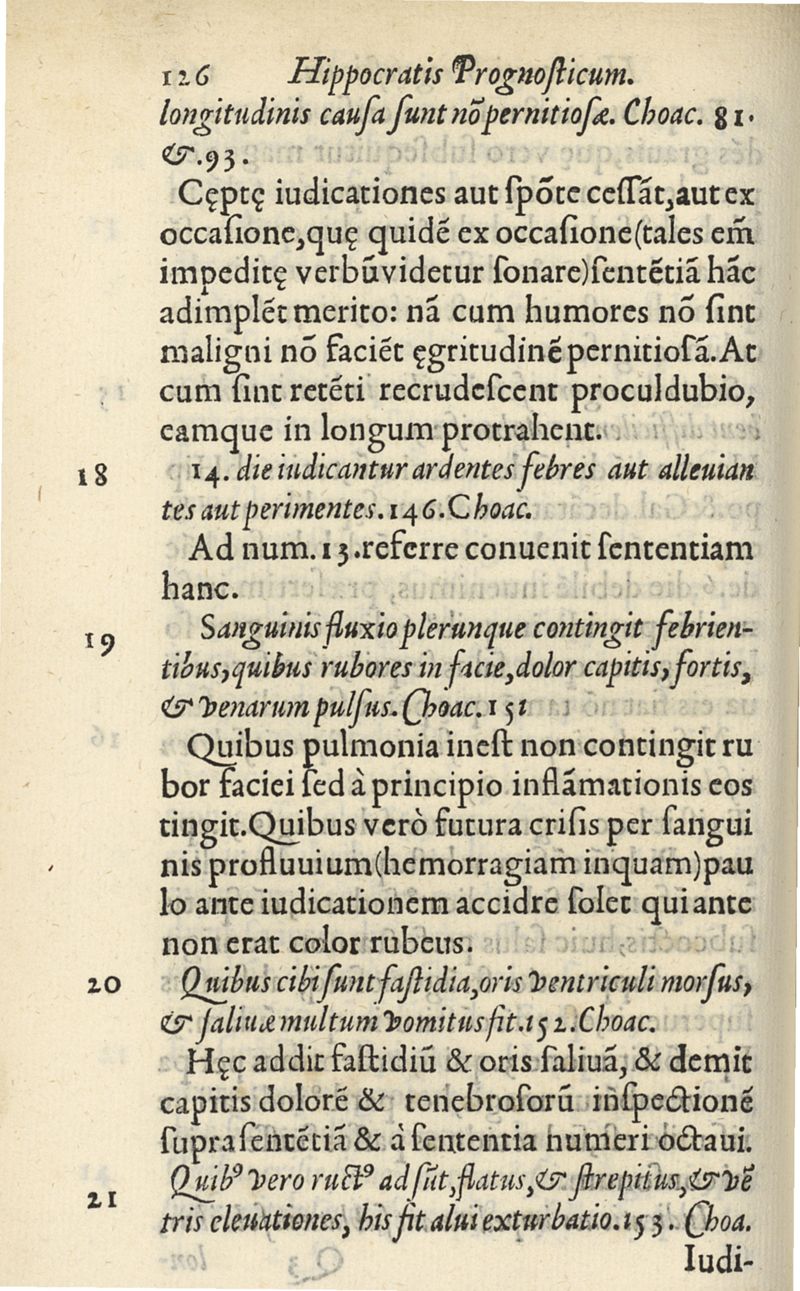 126 Hippocratis Prognosticum.
longitudinis causa sunt nõ pernitiosæ. Choac. 81.
&.93.
Cęptę iudicationes aut spõte cessãt,aut ex
occasione,quę quidẽ ex occasione(tales em̃
impeditę verbũ videtur sonare)sentẽtiã hãc
adimplẽt merito: nã cum humores nõ sint
maligni nõ faciẽt ęgritudinẽ pernitiosã.At
cum sint retẽti recrudescent proculdubio,
eamque in longum protrahent.
18 14. die iudicantur ardentes febres aut alleuian
tes aut perimentes.146.Choac.
Ad num.13.referre conuenit sententiam
hanc.
19 Sanguinis fluxio plerunque contingit febrien-
tibus,quibus rubores in facie,dolor capitis,fortis,
& venarum pulsus.Choac.151
Quibus pulmonia inest non contingit ru
bor faciei sed à principio inflãmationis eos
tingit.Quibus verò futura crisis per sangui
nis profluuium(hemorragiam inquam)pau
lo ante iudicationem accidre solet qui ante
non erat color rubeus.
20 Quibus cibi sunt fastidia,oris ventriculi morsus,
& saliuæ multum vomitus fit.152.Choac.
Hęc addit fastidiũ & oris saliuã, & demit
capitis dolorẽ & tenebrosorũ inspectionẽ
supra sentẽtiã & à sententia numeri octaui.
21 Quibꝰ vero ructꝰ ad sũt,flatus,& strepitus,& vẽ
tris eleuationes, his fit alui exturbatio.153. Choa.
Iudi-